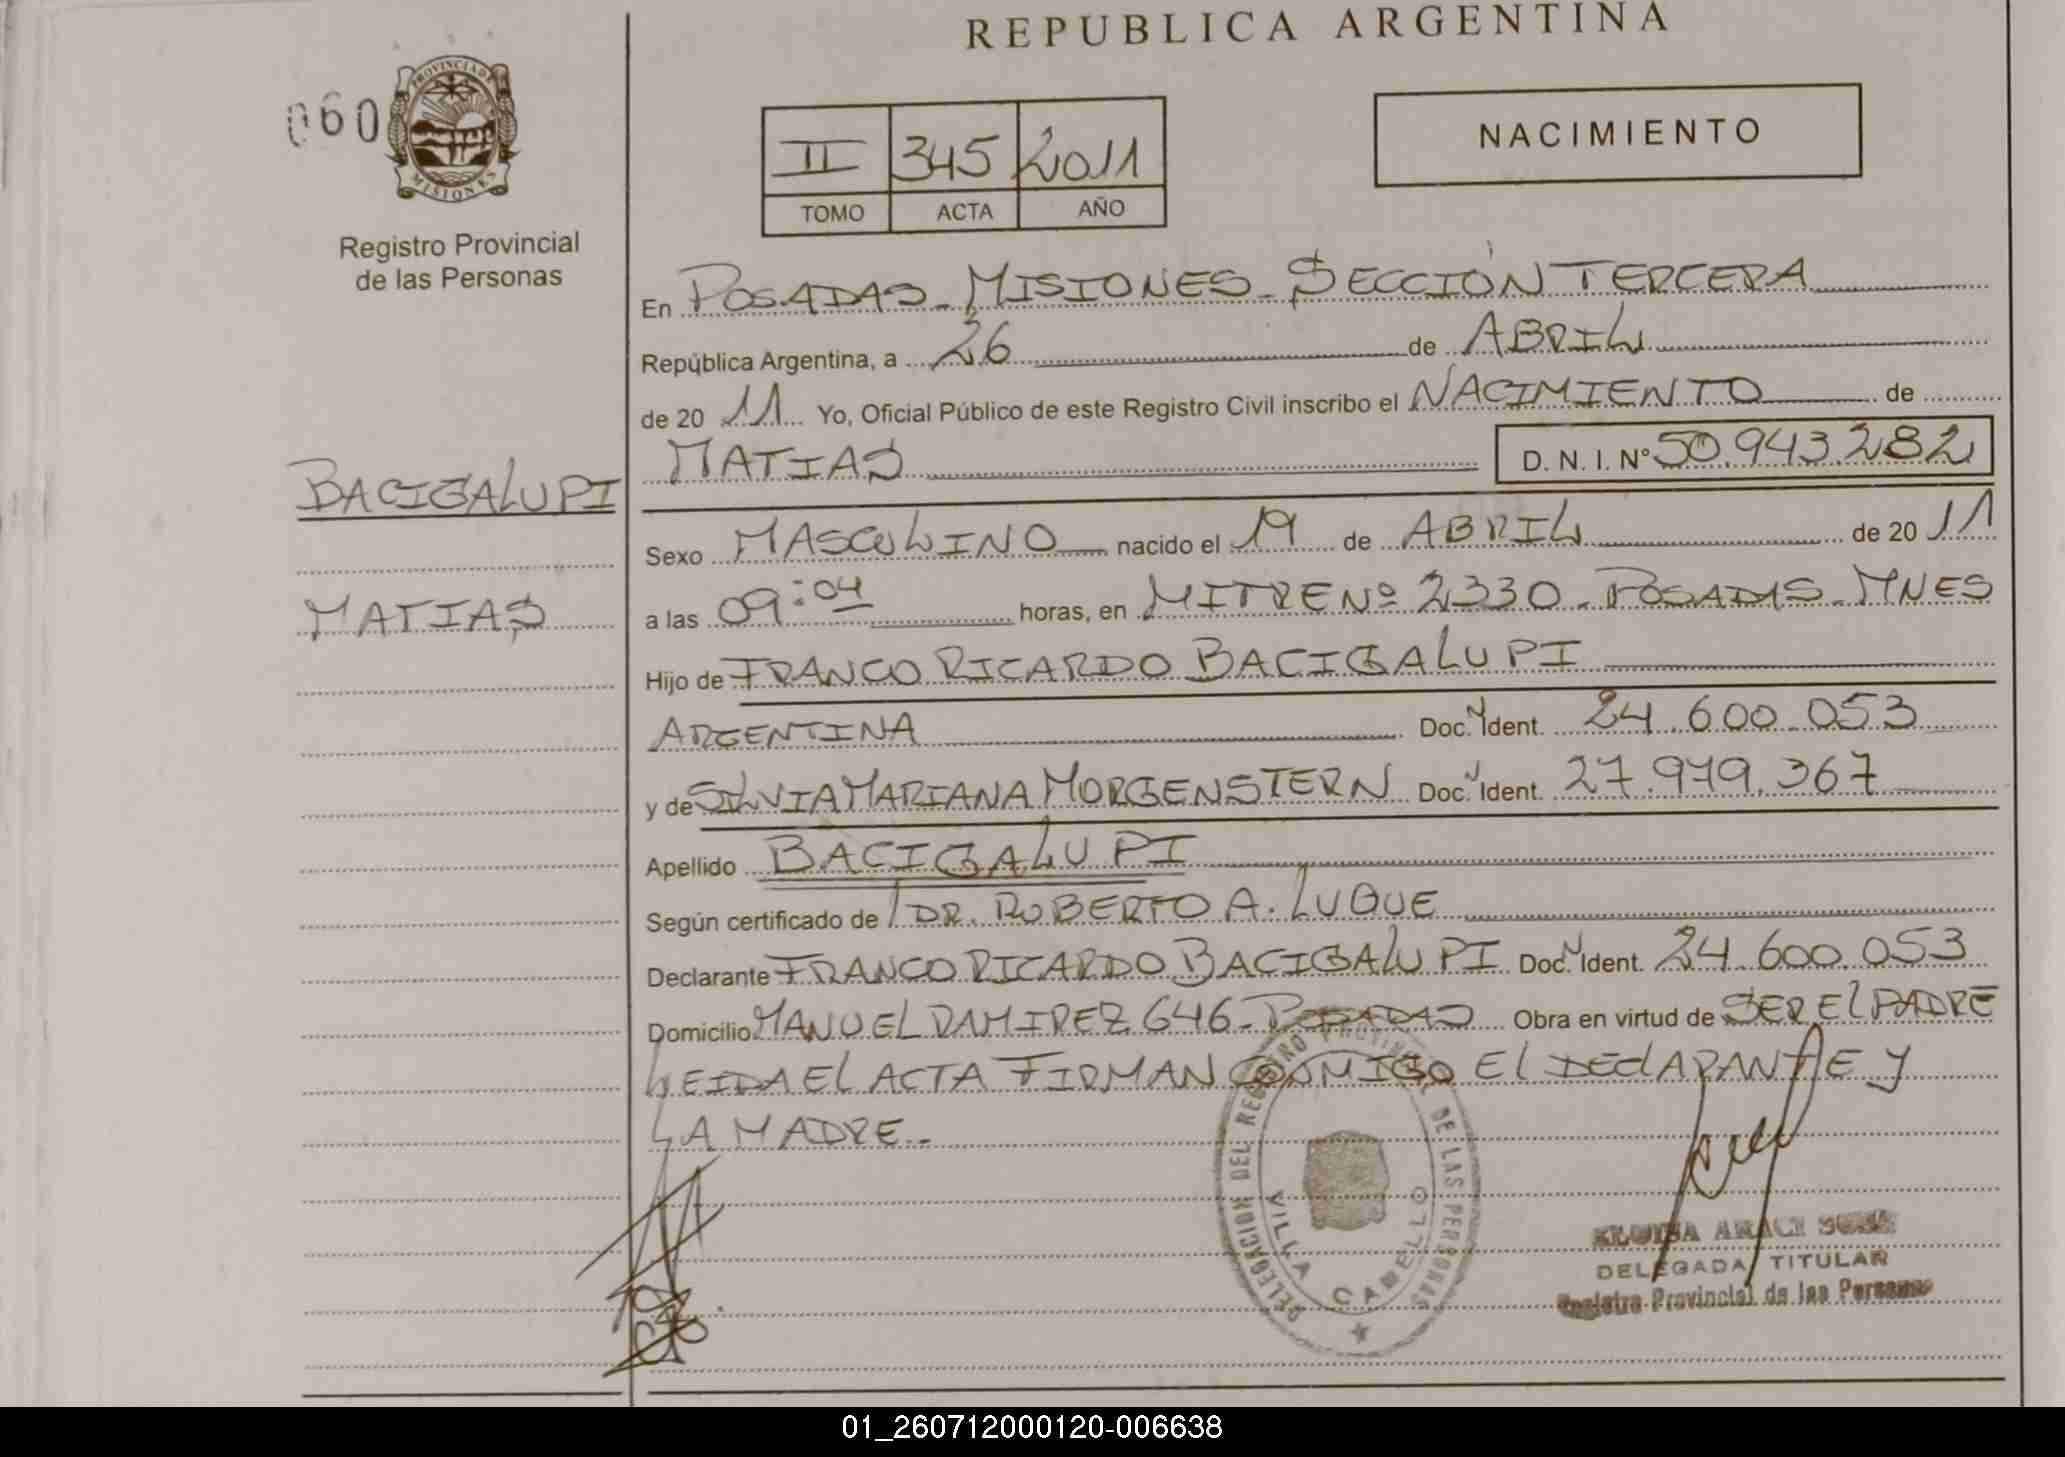 REPUBLICA ARGENTINA
060
PROVINCIA DE
MISIONES
Registro Provincial
de las Personas
II 345 2011
TOMO ACTA AÑO
NACIMIENTO
En POSADAS - MISIONES - SECCIÓN TERCERA
República Argentina, a 26 de ABRIL
de 20 11 Yo, Oficial Público de este Registro Civil inscribo el NACIMIENTO de
MATIAS D. N. I. Nº 50.943.282
BACIGALUPI
Sexo MASCULINO nacido el 19 de ABRIL de 20 11
MATIAS
a las 09:04 horas, en MITRE Nº 2330 - POSADAS - MNES
Hijo de FRANCO RICARDO BACIGALUPI
ARGENTINA Doc. Ident. 24.600.053
y de SILVIA MARIANA MORGENSTERN Doc. Ident. 27.979.367
Apellido BACIGALUPI
Según certificado de DR. ROBERTO A. LUQUE
Declarante FRANCO RICARDO BACIGALUPI Doc. Ident. 24.600.053
Domicilio MANUEL RAMIREZ 646 - POSADAS Obra en virtud de SER EL PADRE
LEIDA EL ACTA FIRMAN CONMIGO EL DECLARANTE Y
LA MADRE.-
DELEGACION DEL REGISTRO PROVINCIAL DE LAS PERSONAS
VILLA CABELLO
DELEGADA TITULAR
Registro Provincial de las Personas
01_260712000120-006638